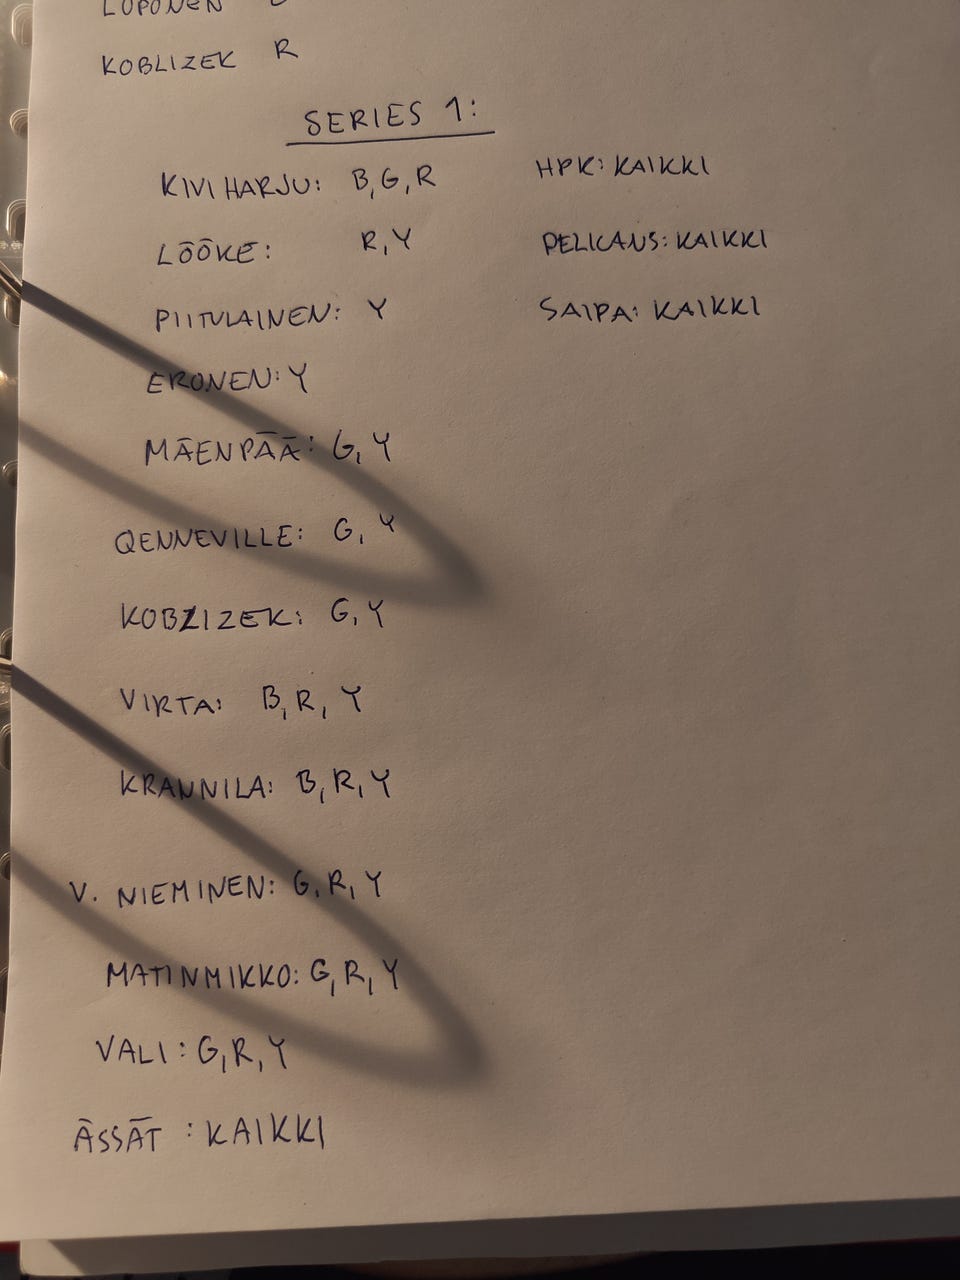 LOPONEN
KOBLIZEK R
SERIES 1:
KIVIHARJU: B,G,R
LÖÖKE: R,Y
PIITULAINEN: Y
ERONEN: Y
MÄENPÄÄ: G,Y
QENNEVILLE: G,Y
KOBLIZEK: G,Y
VIRTA: B,R,Y
KRANNILA: B,R,Y
V. NIEMINEN: G,R,Y
MATINMIKKO: G,R,Y
VALI: G,R,Y
ÄSSÄT : KAIKKI
HPK: KAIKKI
PELICANS: KAIKKI
SAIPA: KAIKKI